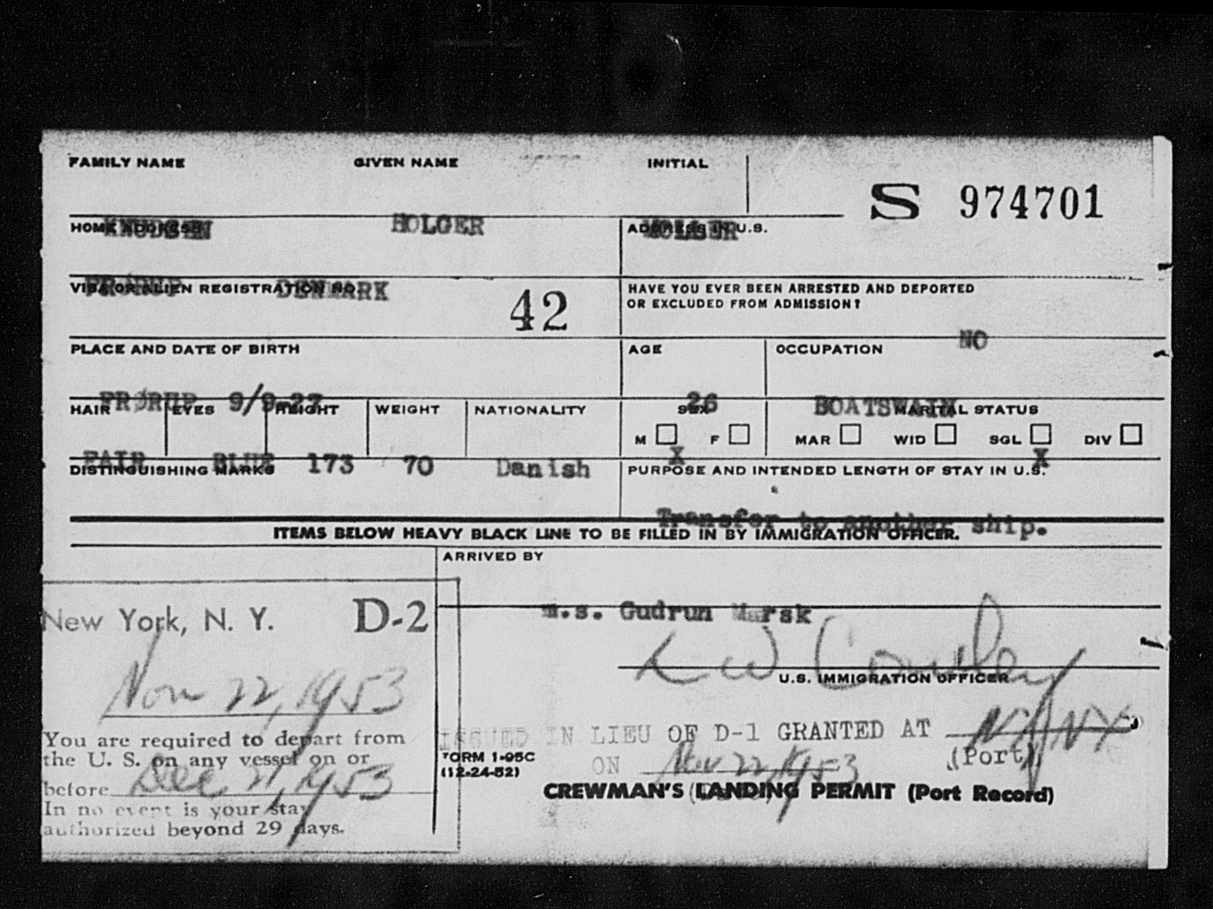 FAMILY NAME GIVEN NAME INITIAL
S 974701
KNUDSEN HOLGER HOLGER
HOME ADDRESS ADDRESS IN U.S.
FRØRUP DENMARK
VISA OR ALIEN REGISTRATION NO. HAVE YOU EVER BEEN ARRESTED AND DEPORTED
OR EXCLUDED FROM ADMISSION?
42
NO
PLACE AND DATE OF BIRTH AGE OCCUPATION
FRØRUP 9/9-27 26 BOATSWAIN
HAIR EYES HEIGHT WEIGHT NATIONALITY SEX MARITAL STATUS
M F MAR WID SGL DIV
FAIR BLUE 173 70 Danish X X
DISTINGUISHING MARKS PURPOSE AND INTENDED LENGTH OF STAY IN U.S.
Transfer to another ship.
ITEMS BELOW HEAVY BLACK LINE TO BE FILLED IN BY IMMIGRATION OFFICER.
ARRIVED BY
m.s. Gudrun Mærsk
New York, N. Y. D-2
U.S. IMMIGRATION OFFICER
Nov 22, 1953
You are required to depart from
the U. S. on any vessel on or
before Dec 21, 1953
In no event is your stay
authorized beyond 29 days.
ISSUED IN LIEU OF D-1 GRANTED AT NYNY
(Port)
ON Nov 22, 1953
FORM I-95C
(12-24-52)
CREWMAN'S LANDING PERMIT (Port Record)